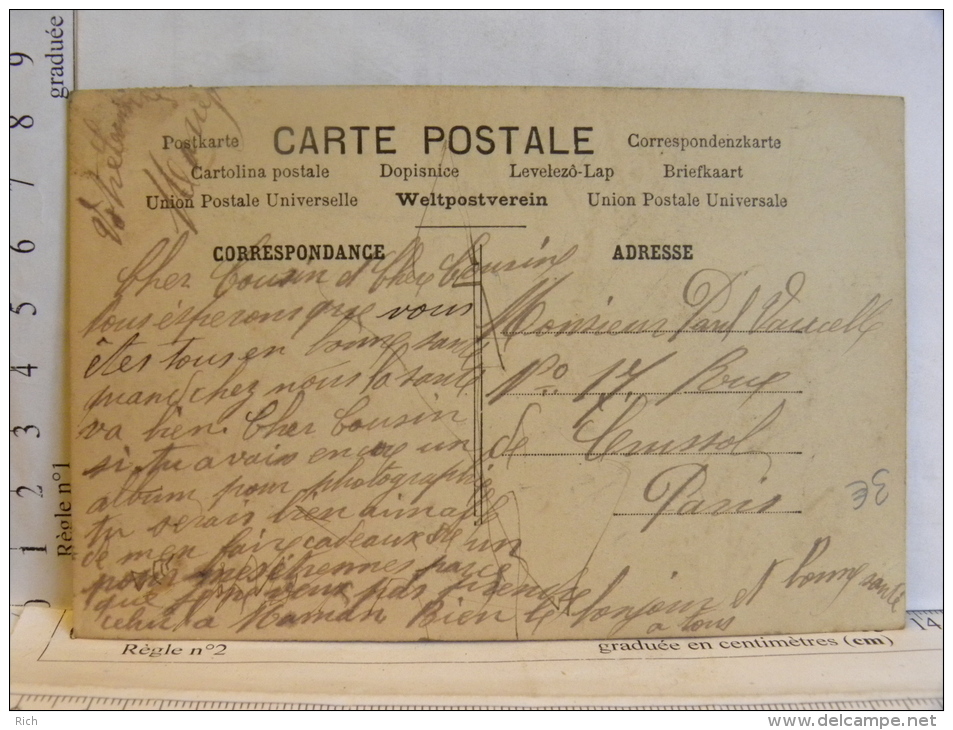 graduée
9
8
7
6
5
4
3
2
1
0
Règle n°1
Postkarte CARTE POSTALE Correspondenzkarte
Cartolina postale Dopisnice Levelezô-Lap Briefkaart
Union Postale Universelle Weltpostverein Union Postale Universale
CORRESPONDANCE ADRESSE
Cher Cousin et Chère Cousine
tous espérons que vous
êtes tous en bonne santé
quand chez nous la santé
va bien. Cher Cousin
si tu avais encore un
album pour photographie
tu serais bien aimable
de men faire cadeaux de un
pour mes étrennes parce
que je ne veux pas prendre
celui a Maman Bien le bonjour et bonne santé
a tous
Monsieur Paul Vaucelle
No 17 Rue
de Crussol
Paris
3€
Règle n°2
graduée en centimètres (cm)
14
Rich
http://www.delcampe.net